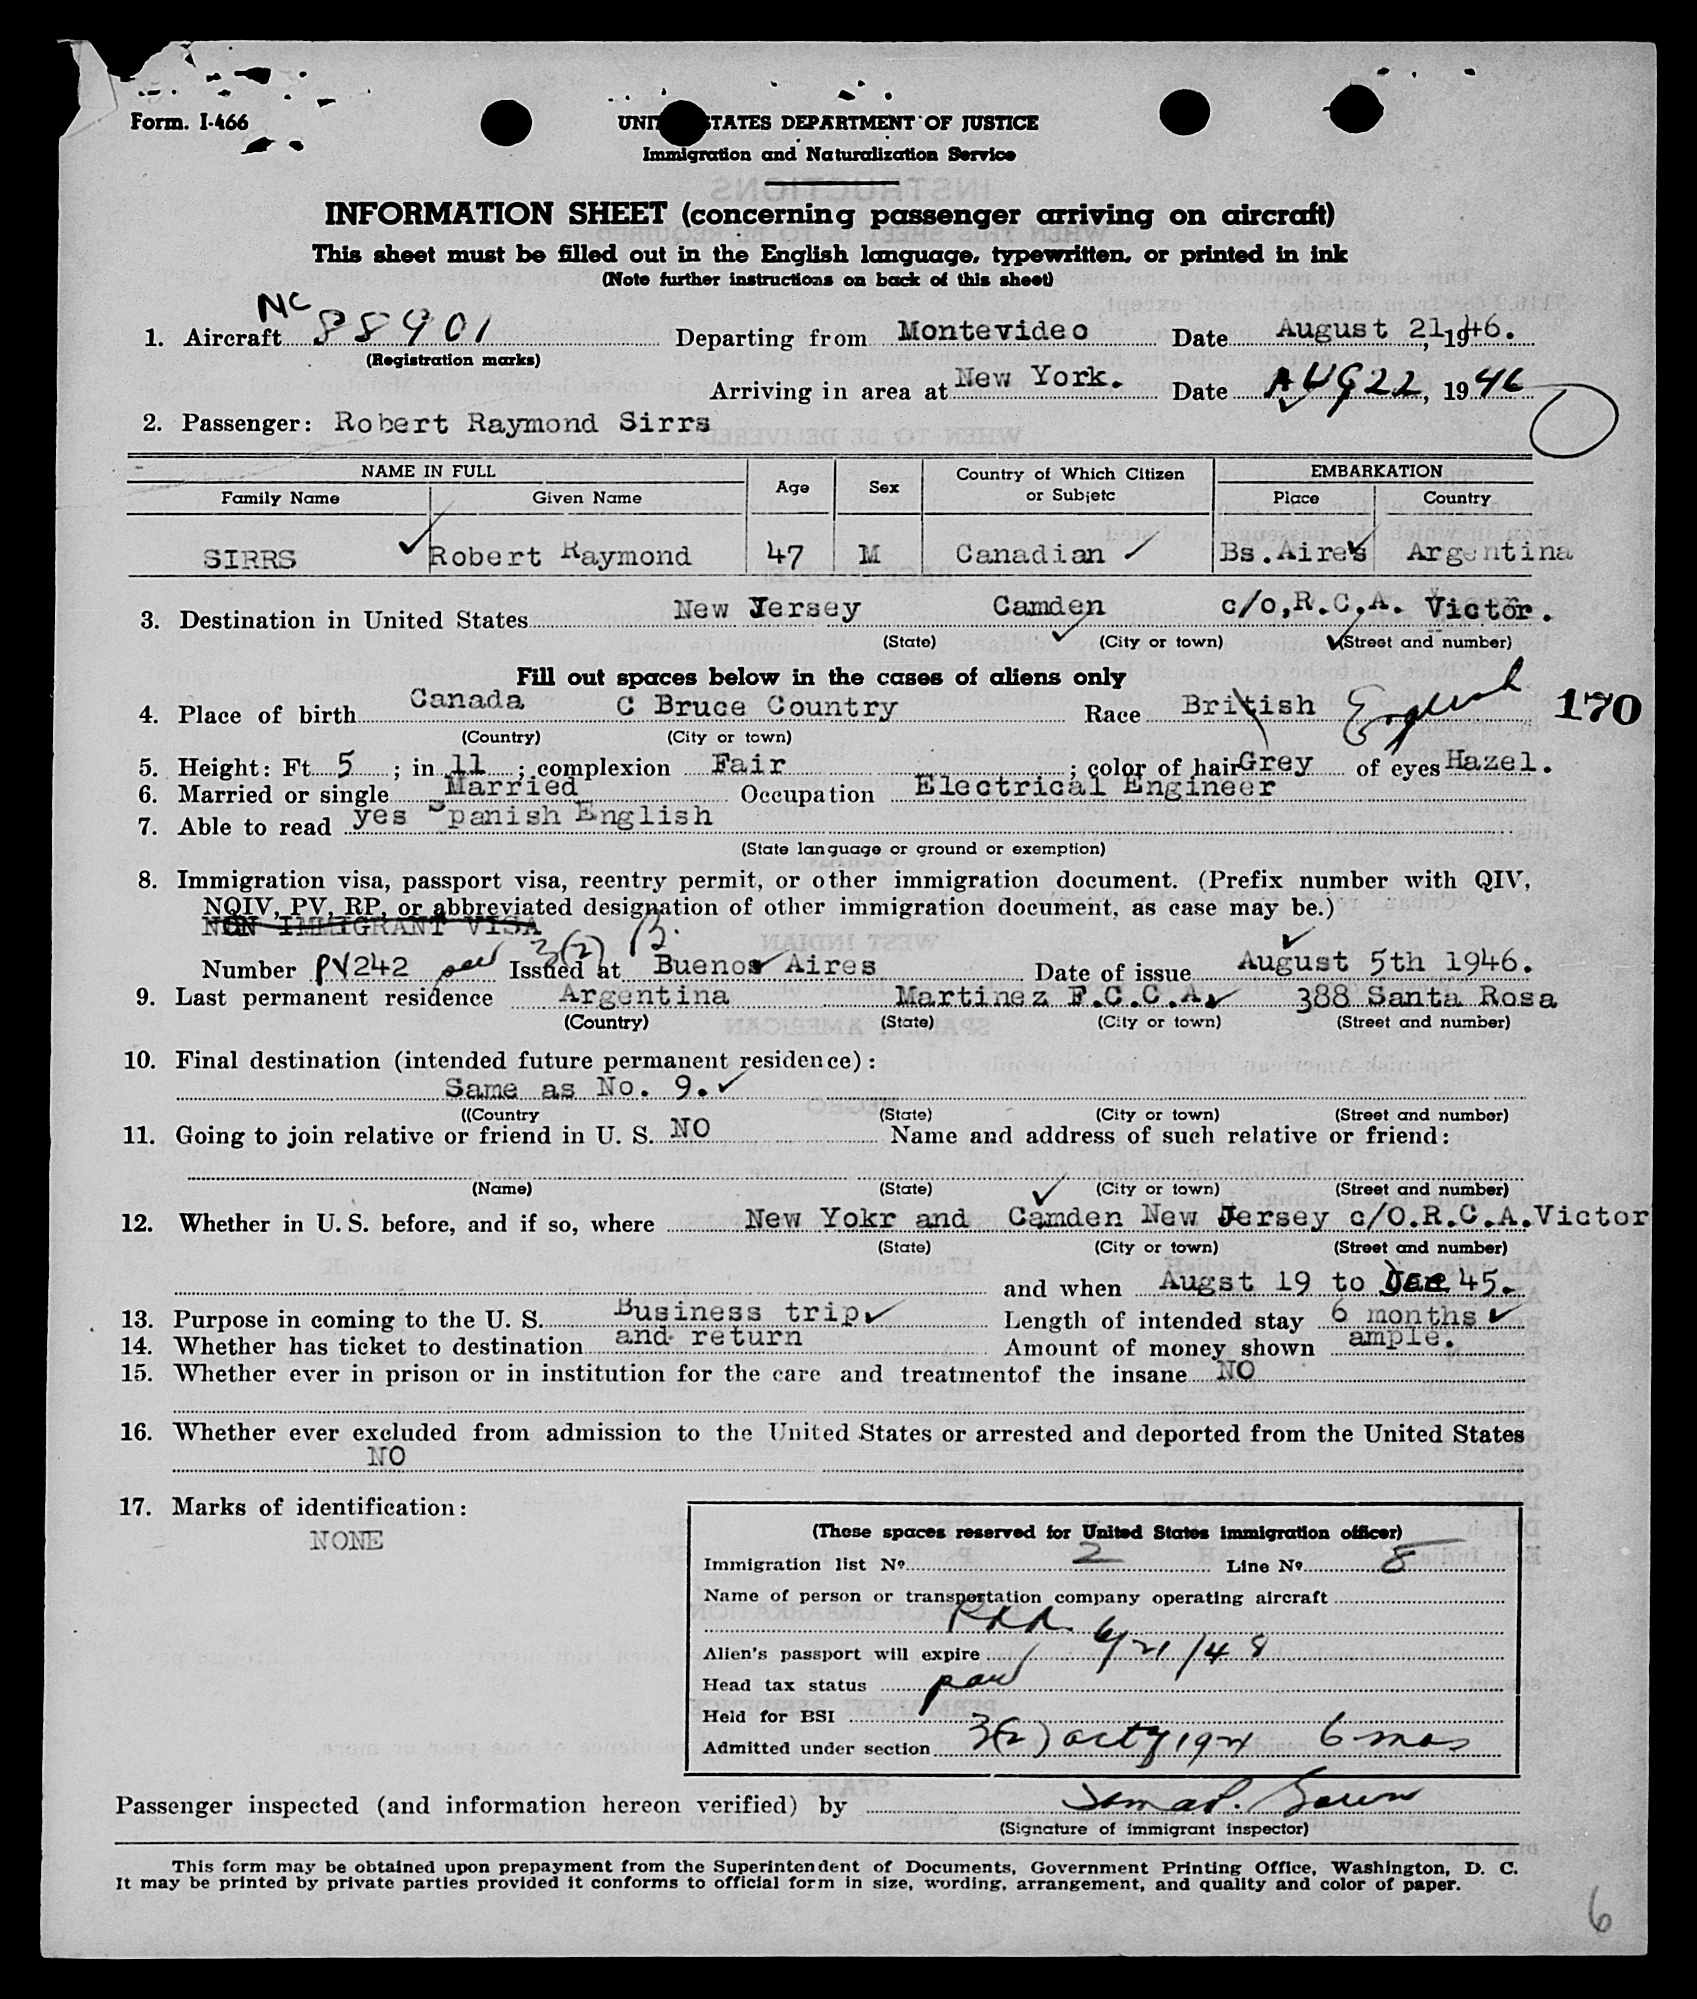 Form. I-466
UNITED STATES DEPARTMENT OF JUSTICE
Immigration and Naturalization Service
INFORMATION SHEET (concerning passenger arriving on aircraft)
This sheet must be filled out in the English language, typewritten, or printed in ink
(Note further instructions on back of this sheet)
1. Aircraft NC 88901 Departing from Montevideo Date August 21, 1946.
(Registration marks)
Arriving in area at New York. Date AUG 22, 1946
2. Passenger: Robert Raymond Sirrs
NAME IN FULL Age Sex Country of Which Citizen or Subjetc EMBARKATION
Family Name Given Name Place Country
SIRRS Robert Raymond 47 M Canadian Bs.Aires Argentina
3. Destination in United States New Jersey Camden c/o,R.C.A. Victor.
(State) (City or town) (Street and number)
Fill out spaces below in the cases of aliens only
4. Place of birth Canada C Bruce Country Race British English 170
(Country) (City or town)
5. Height: Ft. 5 ; in 11 ; complexion Fair ; color of hair Grey of eyes Hazel.
6. Married or single Married Occupation Electrical Engineer
7. Able to read yes Spanish English
(State language or ground or exemption)
8. Immigration visa, passport visa, reentry permit, or other immigration document. (Prefix number with QIV,
NQIV, PV, RP, or abbreviated designation of other immigration document, as case may be.)
NON IMMIGRANT VISA 3(2) B.
Number PV242 Issued at Buenos Aires Date of issue August 5th 1946.
9. Last permanent residence Argentina Martinez F.C.C.A. 388 Santa Rosa
(Country) (State) (City or town) (Street and number)
10. Final destination (intended future permanent residence):
Same as No. 9.
((Country (State) (City or town) (Street and number)
11. Going to join relative or friend in U. S. NO Name and address of such relative or friend:
(Name) (State) (City or town) (Street and number)
12. Whether in U. S. before, and if so, where New Yokr and Camden New Jersey c/O.R.C.A.Victor
(State) (City or town) (Street and number)
and when Augst 19 to 45.
13. Purpose in coming to the U. S. Business trip Length of intended stay 6 months
14. Whether has ticket to destination and return Amount of money shown ample.
15. Whether ever in prison or in institution for the care and treatmentof the insane NO
16. Whether ever excluded from admission to the United States or arrested and deported from the United States
NO
17. Marks of identification:
NONE
(These spaces reserved for United States immigration officer)
Immigration list No. 2 Line No. 8
Name of person or transportation company operating aircraft
PAA
Alien's passport will expire 6/21/48
Head tax status paid
Held for BSI
Admitted under section 3(2) act of 1924 6 mos
Passenger inspected (and information hereon verified) by
(Signature of immigrant inspector)
This form may be obtained upon prepayment from the Superintendent of Documents, Government Printing Office, Washington, D. C.
It may be printed by private parties provided it conforms to official form in size, wording, arrangement, and quality and color of paper.
6